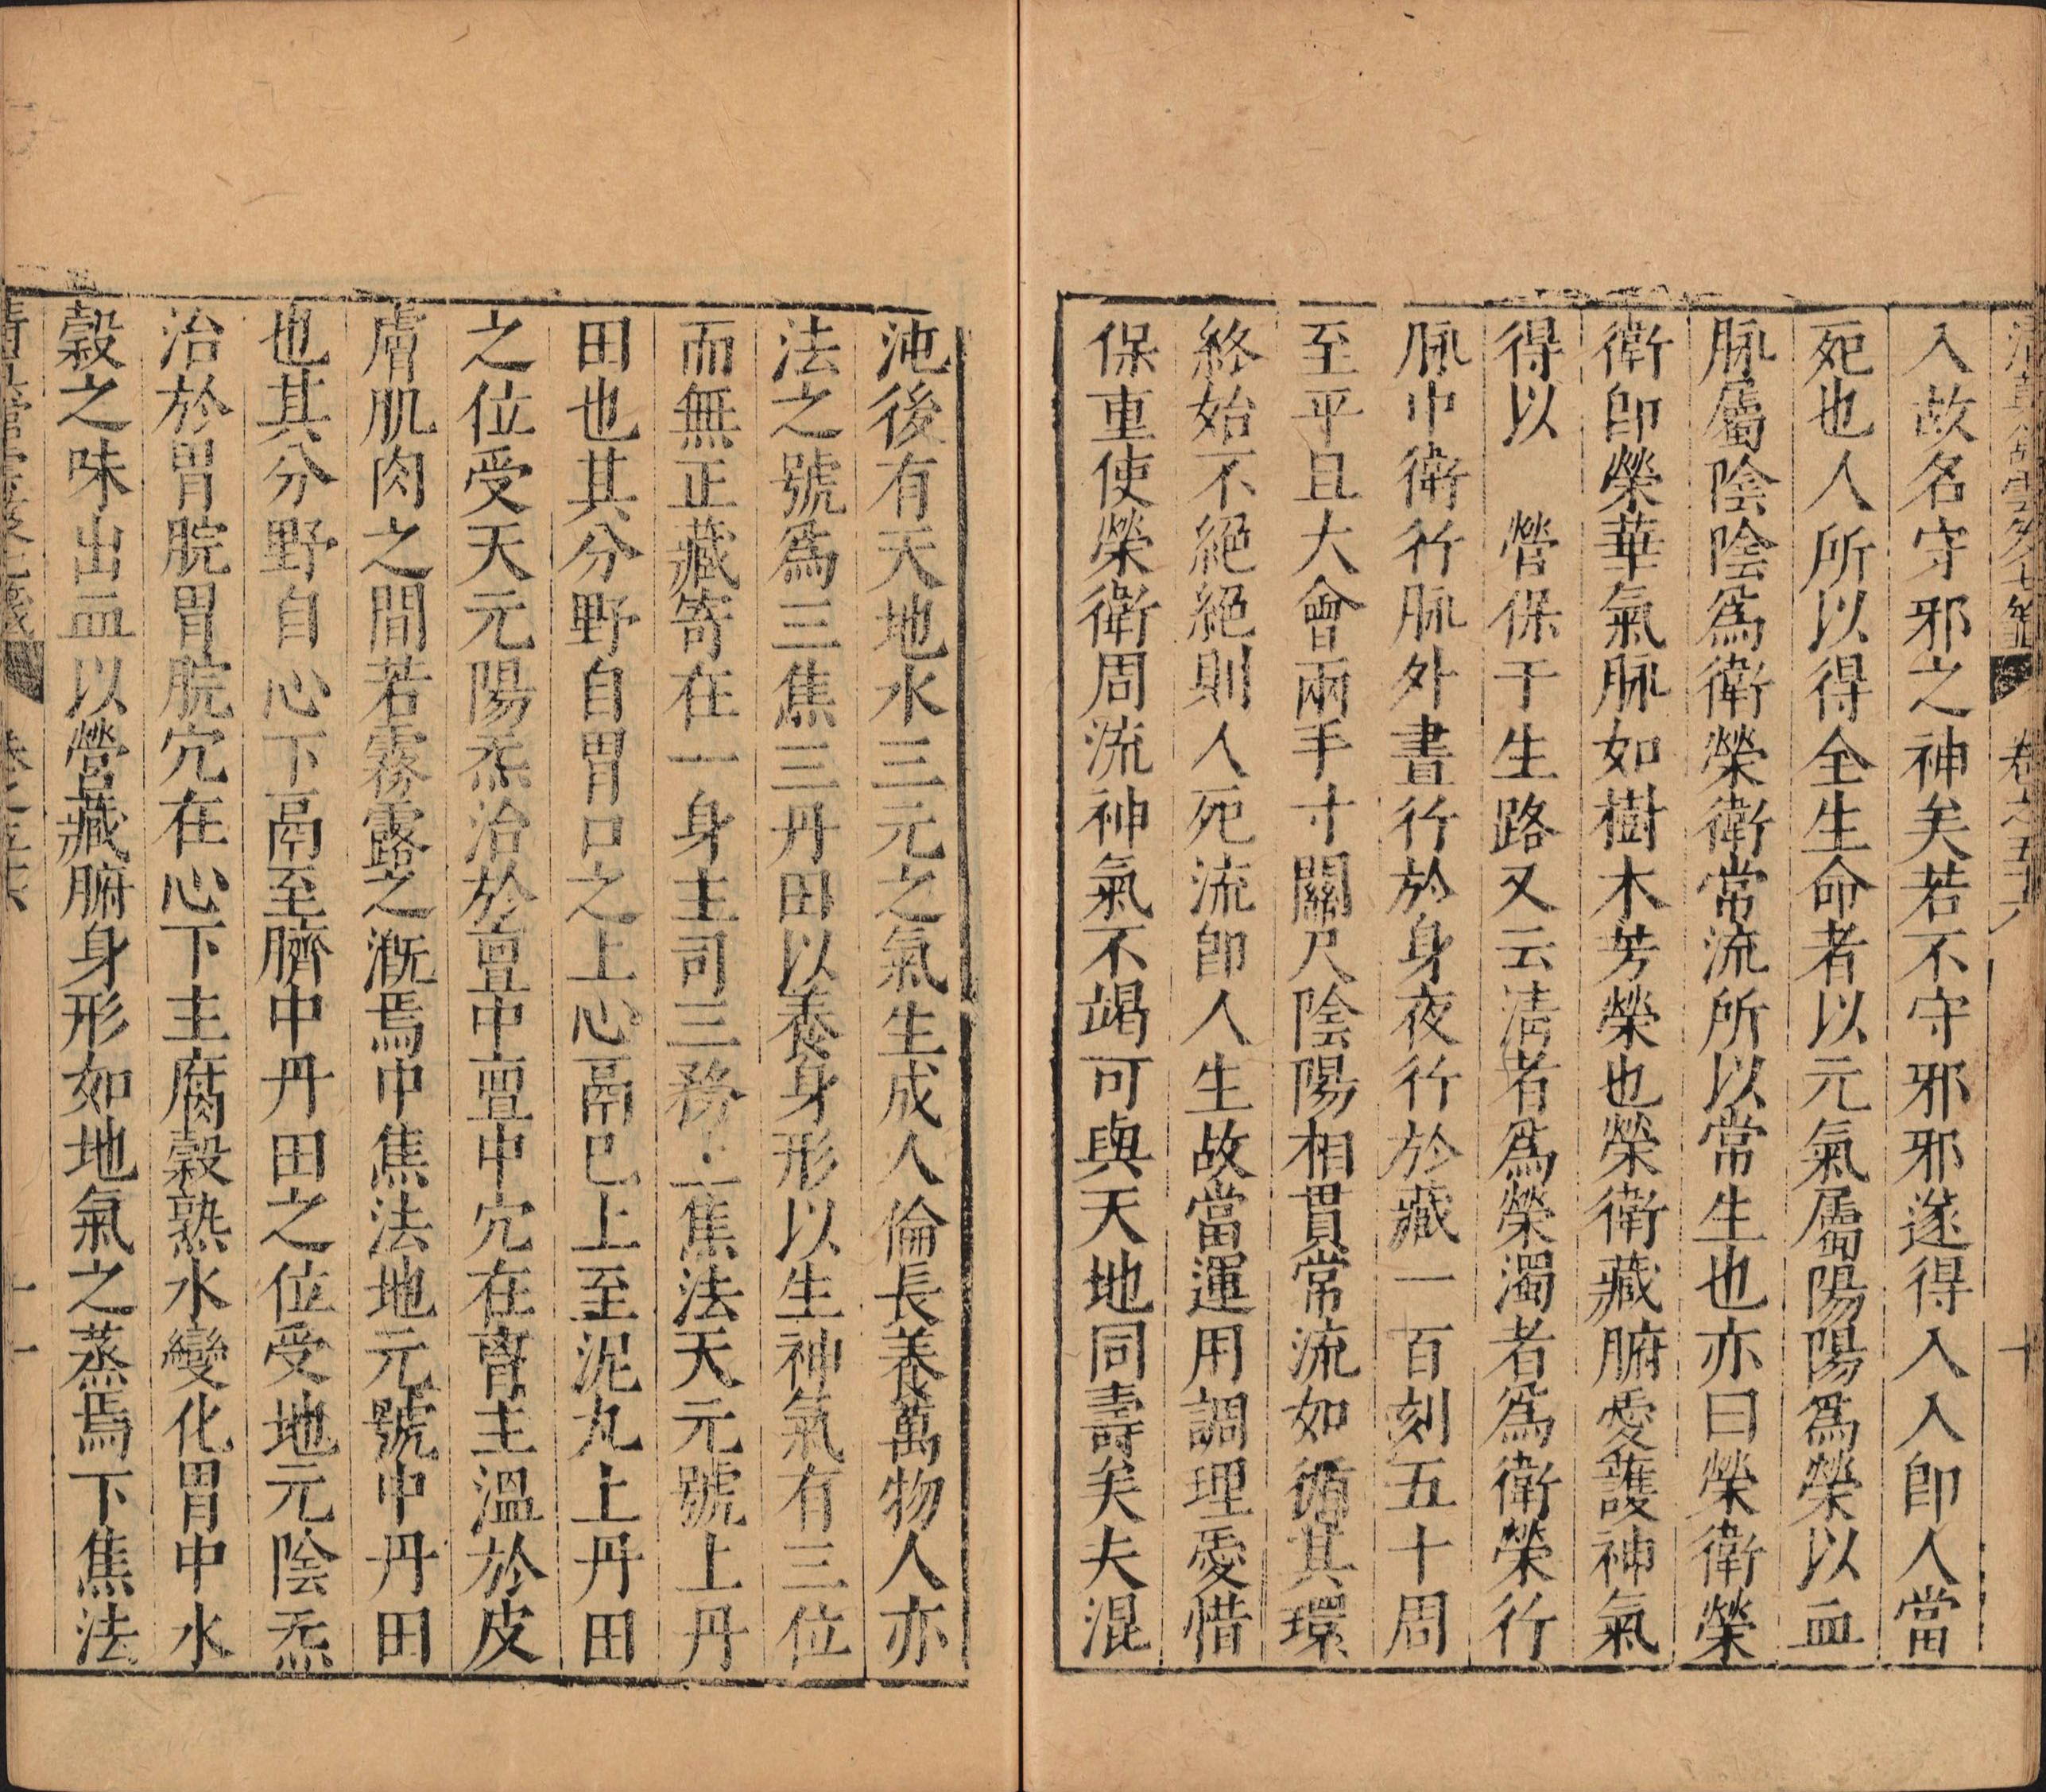 卷之五十六
十
入故名守邪之神矣若不守邪邪遂得入入即人當
死也人所以得全生命者以元氣屬陽陽爲榮以血
脉屬陰陰爲衛榮衛常流所以常生也亦曰榮衛榮
衛即榮華氣脉如樹木芳榮也榮衛藏腑愛護神氣
得以　營保于生路又云清者爲榮濁者爲衛榮行
脉中衛行脉外晝行於身夜行於藏一百刻五十周
至平旦大會兩手寸關尺陰陽相貫常流如循其環
終始不絕絕則人死流即人生故當運用調理愛惜
保重使榮衛周流神氣不竭可與天地同壽矣夫混
沌後有天地水三元之氣生成人倫長養萬物人亦
法之號爲三焦三丹田以養身形以生神氣有三位
而無正藏寄在一身主司三務上焦法天元號上丹
田也其分野自胃口之上心鬲巳上至泥丸上丹田
之位受天元陽炁治於亶中亶中穴在𦙄主溫於皮
膚肌肉之間若霧露之溉焉中焦法地元號中丹田
也其分野自心下鬲至臍中丹田之位受地元陰炁
治於胃脘胃脘穴在心下主腐穀熟水變化胃中水
穀之味出血以營藏腑身形如地氣之蒸焉下焦法
十一